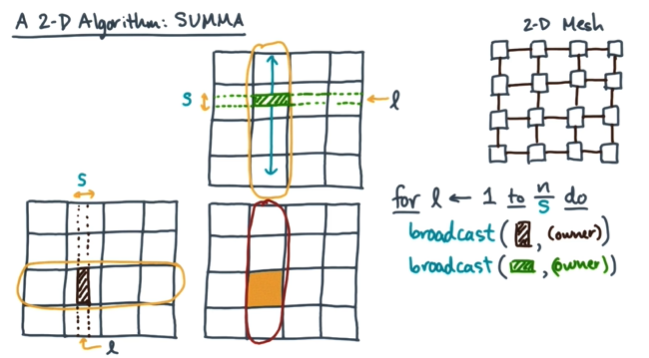 A 2-D Algorithm: SUMMA
2-D Mesh
s
l
s
l
for l ← 1 to n/s do
broadcast( , (owner))
broadcast( , (owner))